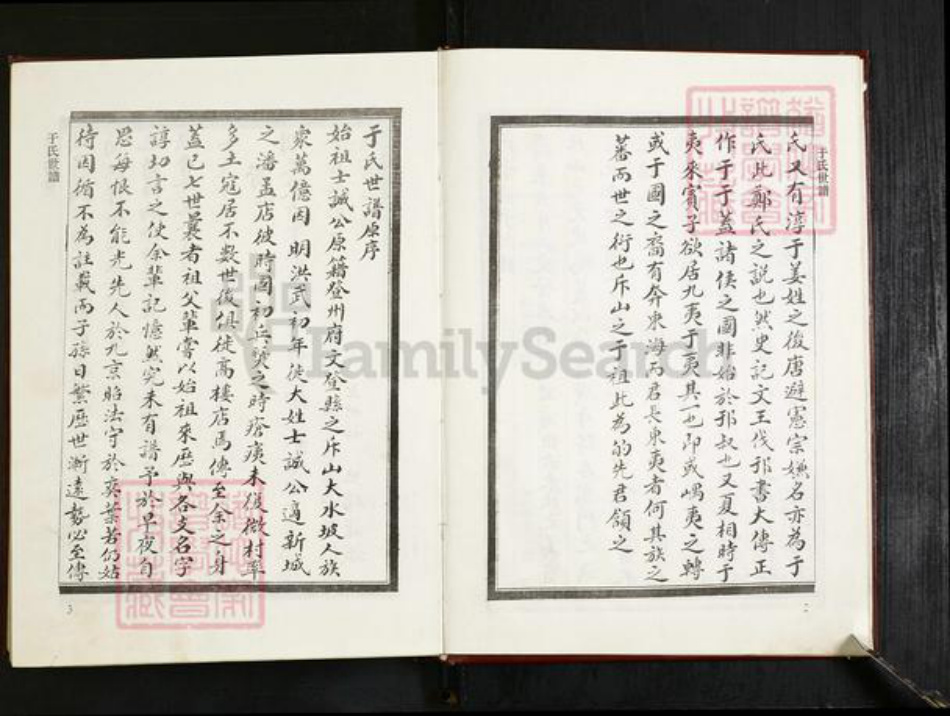 于氏世譜
氏又有淳于姜姓之後唐避憲宗嫌名亦為于
氏此鄭氏之説也然史記文王伐邘書大傳正
作于于蓋諸侯之國非始於邘叔也又夏相時于
夷來賓子欲居九夷于夷其一也即或嵎夷之轉
或于國之裔有奔東海而君長東夷者何其族之
蕃而世之衍也斥山之于祖此為的先君領之
2
于氏世譜原序
始祖士誠公原籍登州府文登縣之斥山大水坡人族
衆萬億因 明洪武初年徙大姓士誠公適新城
之潘孟店彼時國初兵燹之時瘡痍未復微村率
多土寇居不數世後俱徙高樓店馬傳至余之身
蓋已七世曩者祖父輩嘗以始祖來歷與各支名字
諄切言之使余輩記憶然究未有譜予於早夜自
思每恨不能光先人於九京貽法守於奕葉若仍姑
待因循不為註載而子孫日繁歷世漸遠勢必至傳
于氏世譜
3
FamilySearch